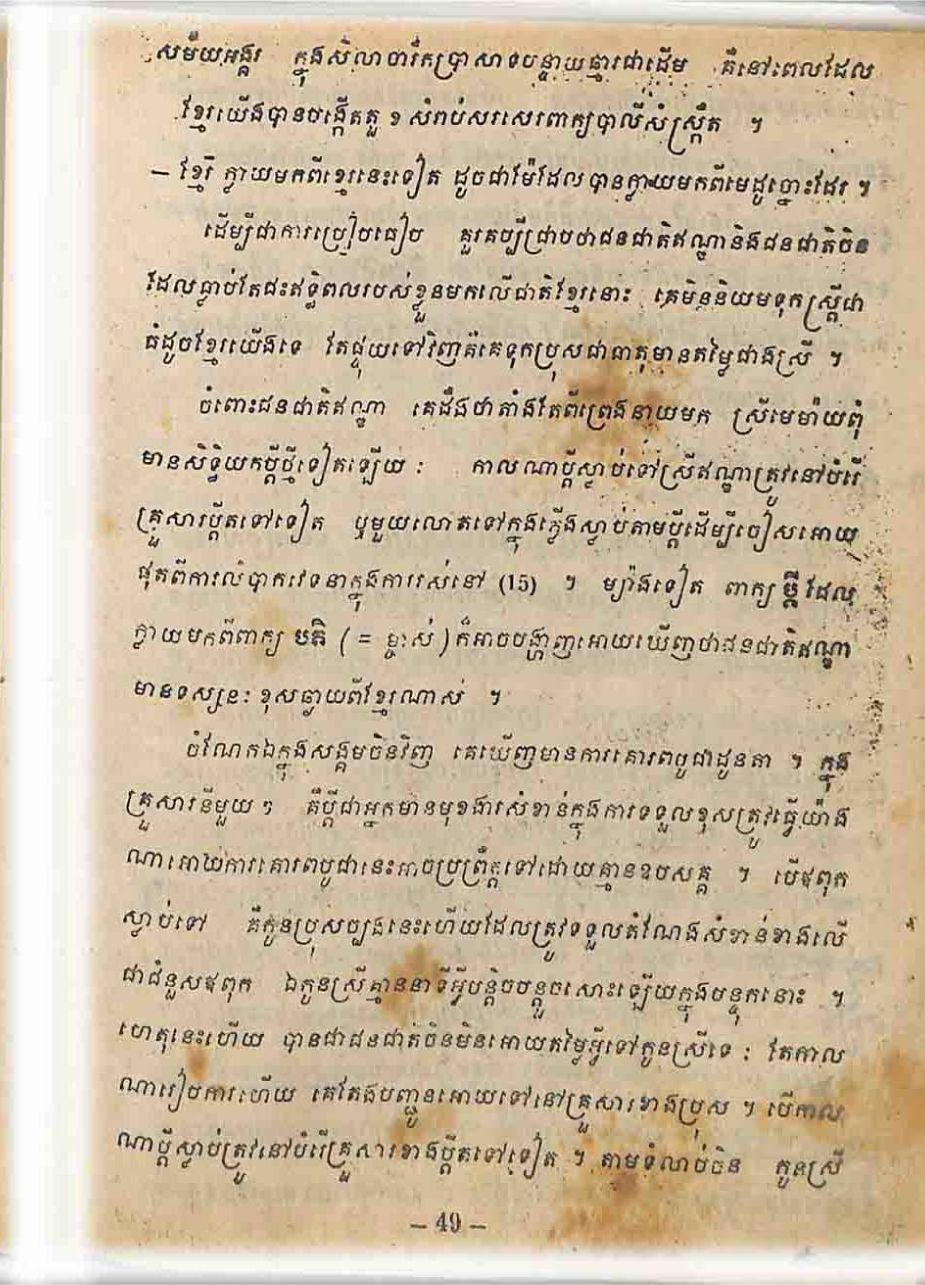 សម័យអង្គរ ក្នុងសិលាចារឹកប្រាសាទបន្ទាយឆ្មារជាដើម គឺនៅពេលដែល
ខ្មែរយើងបានបង្កើតតួ ខ សំរាប់សរសេរពាក្យបាលីសំស្ក្រឹត ។
– ខ្មែរិ ក្លាយមកពីខ្មេរនេះទៀត ដូចជាម៉ែដែលបានក្លាយមកពីមេដូច្នោះដែរ ។
ដើម្បីជាការប្រៀបធៀប គួរគប្បីជ្រាបថាជនជាតិឥណ្ឌានិងជនជាតិចិន
ដែលធ្លាប់តែជះឥទ្ធិពលរបស់ខ្លួនមកលើជាតិខ្មែរនោះ គេមិននិយមទុកស្ត្រីជា
ធំដូចខ្មែរយើងទេ តែផ្ទុយទៅវិញគឺគេទុកប្រុសជាធាតុមានតម្លៃជាងស្រី ។
ចំពោះជនជាតិឥណ្ឌា គេដឹងថាតាំងតែពីព្រេងនាយមក ស្រីមេម៉ាយពុំ
មានសិទ្ធិយកប្ដីថ្មីទៀតឡើយ : កាលណាប្ដីស្លាប់ទៅស្រីឥណ្ឌាត្រូវនៅបំរើ
គ្រួសារប្ដីតទៅទៀត ឬមួយលោតទៅក្នុងភ្លើងស្លាប់តាមប្ដីដើម្បីចៀសអោយ
ផុតពីការលំបាកវេទនាក្នុងការរស់នៅ (15) ។ ម្យ៉ាងទៀត ពាក្យ ប្ដី ដែល
ក្លាយមកពីពាក្យ បតិ ( = ម្ចាស់ ) ក៏អាចបង្ហាញអោយឃើញថាជនជាតិឥណ្ឌា
មានទស្សនះខុសឆ្ងាយពីខ្មែរណាស់ ។
ចំណែកឯក្នុងសង្គមចិនវិញ គេឃើញមានការគោរពបូជាដូនតា ។ ក្នុង
គ្រួសារនីមួយៗ គឺប្ដីជាអ្នកមានមុខងារសំខាន់ក្នុងការទទួលខុសត្រូវធ្វើយ៉ាង
ណាអោយការគោរពបូជានេះអាចប្រព្រឹត្តទៅដោយគ្មានឧបសគ្គ ។ បើឪពុក
ស្លាប់ទៅ គឺកូនប្រុសច្បងនេះហើយដែលត្រូវទទួលតំណែងសំខាន់ខាងលើ
ជាជំនួសឪពុក ឯកូនស្រីគ្មាននាទីអ្វីបន្តិចបន្តួចសោះឡើយក្នុងបន្ទុកនោះ ។
ហេតុនេះហើយ បានជាជនជាត់ចិនមិនអោយតម្លៃអ្វីទៅកូនស្រីទេ : តែកាល
ណារៀបការហើយ គេតែងបញ្ជូនអោយទៅនៅគ្រួសារខាងប្រុស ។ បើកាល
ណាប្ដីស្លាប់ត្រូវនៅបំរើគ្រួសារខាងប្ដីតទៅទៀត ។ តាមទំលាប់ចិន កូនស្រី
– 49 –